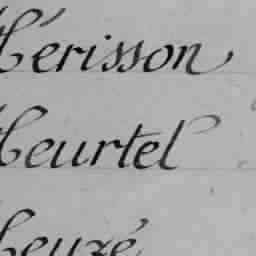 Hérisson
Heurtel
Heuzé